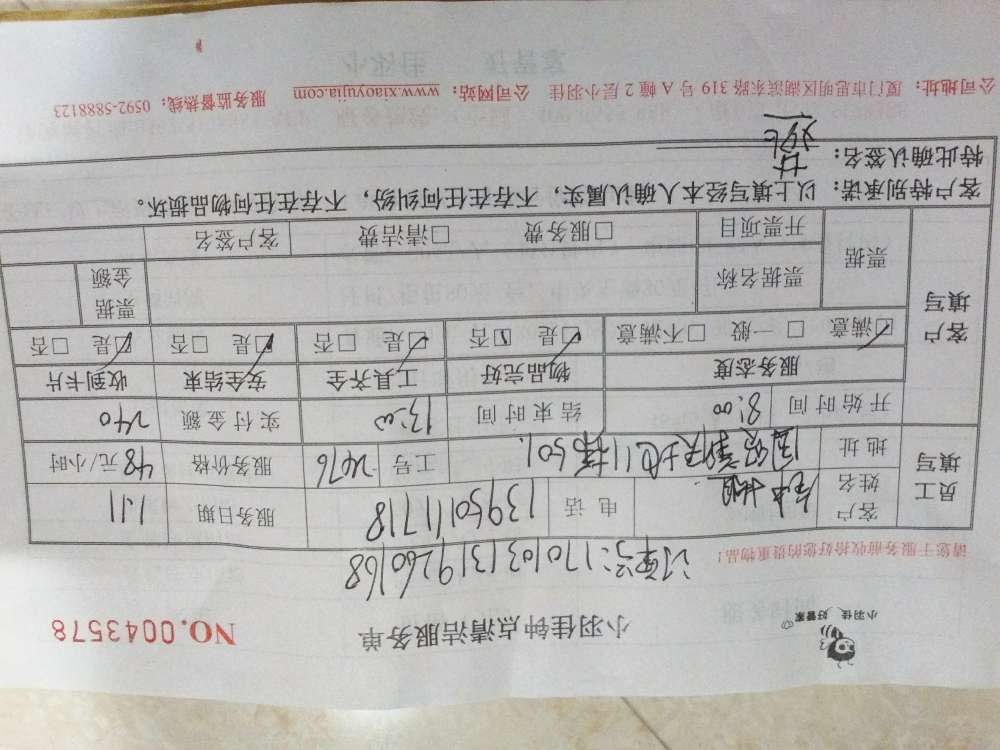 小羽佳 好管家
小羽佳钟点清洁服务单
NO.0043578
订单号:1701031319260168
请您于服务前收拾好您的贵重物品!
员工填写 客户姓名 电话 13950111718 服务日期 1.11
地址 1梯501. 工号 2476 服务价格 48元/小时
开始时间 8:00 结束时间 13:00 实付金额 240
客户填写 服务态度 物品完好 工具齐全 安全结束 收到卡片
☑满意 □一般 □不满意 ☑是 □否 ☑是 □否 ☑是 □否 ☑是 □否
票据 票据名称 票据金额
开票项目 □服务费 □清洁费 客户签名
客户特别承诺:以上填写经本人确认属实,不存在任何纠纷,不存在任何物品损坏。
特此确认签名:
公司地址:厦门市思明区湖滨东路319号A幢2层小羽佳 公司网站:www.xiaoyujia.com 服务监督热线:0592-5888123